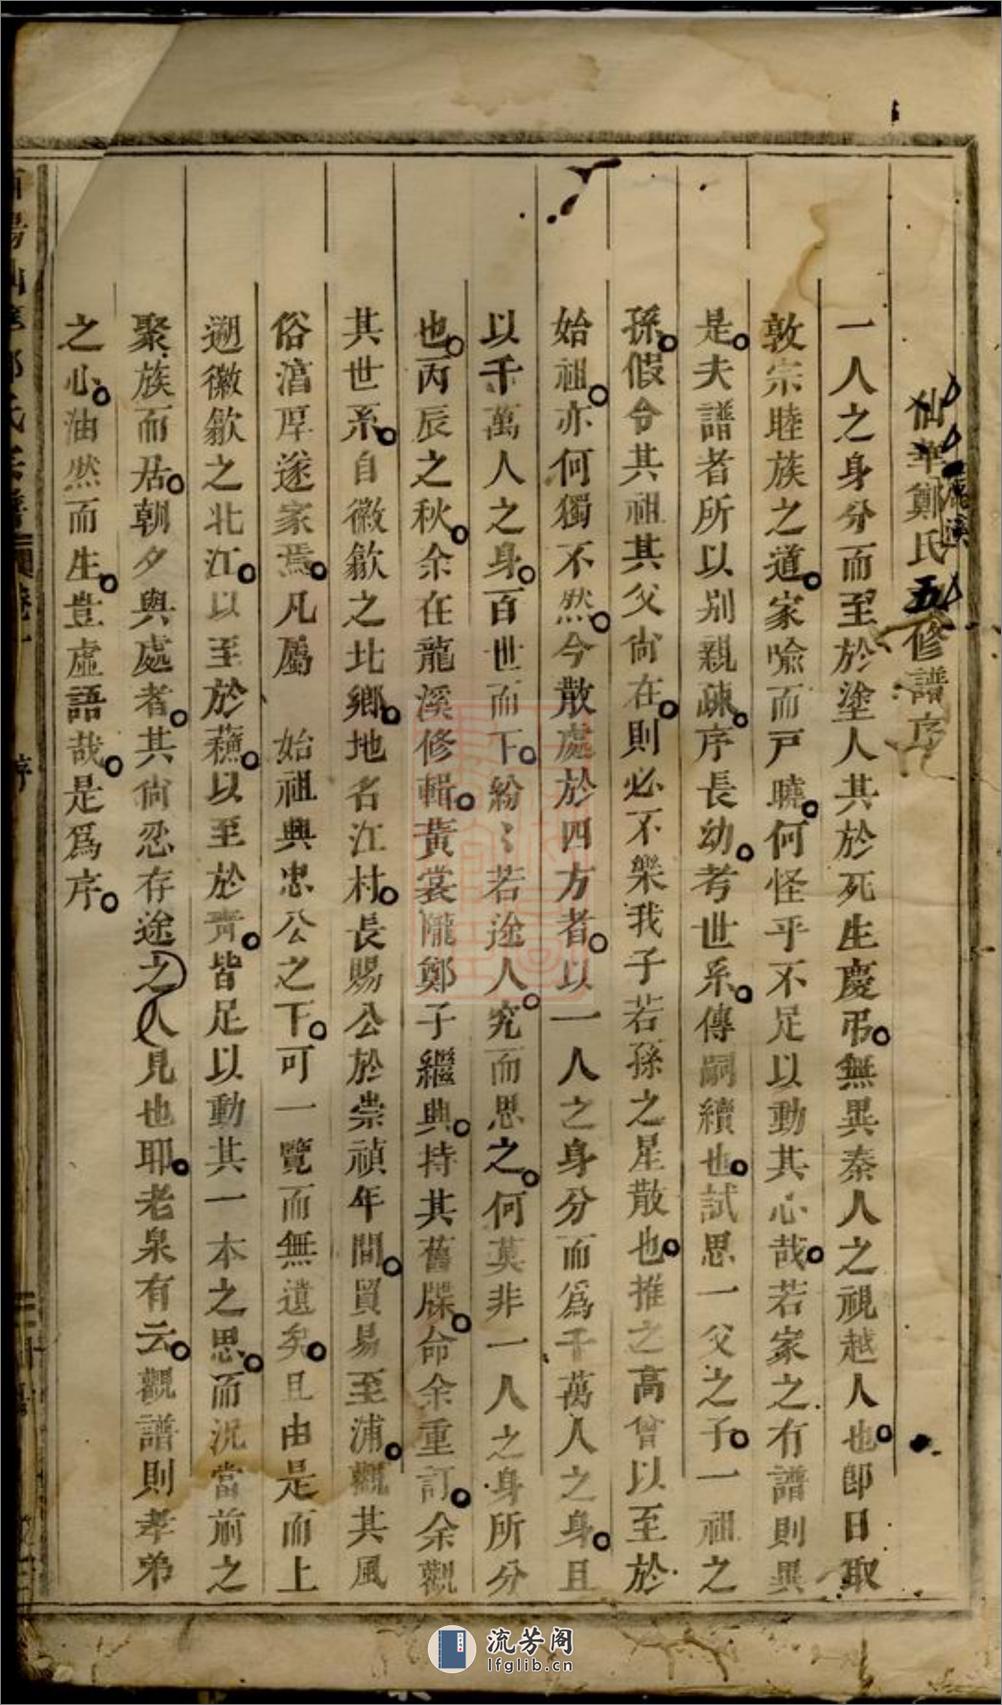 仙華鄭氏五修譜序
龍溪
一人之身分而至於塗人其於死生慶弔無異秦人之視越人也卽日取
敦宗睦族之道家喻而戸曉何怪乎不足以動其心哉若家之有譜則異
是夫譜者所以别親疎序長幼考世系傳嗣續也試思一父之子一祖之
孫假令其祖其父尙在則必不樂我子若孫之星散也推之高曾以至於
始祖亦何獨不然今散處於四方者以一人之身分而爲千萬人之身且
以千萬人之身百世而下紛〻若途人究而思之何莫非一人之身所分
也丙辰之秋余在龍溪修輯黃裳隴鄭子繼典持其舊牒命余重訂余觀
其世系自徽歙之北鄉地名江村長賜公於崇禎年間貿易至浦觀其風
俗湻厚遂家焉凡屬 始祖興忠公之下可一覽而無遺矣且由是而上
遡徽歙之北江以至於蘓以至於靑皆足以動其一本之思而況當前之
聚族而居朝夕與處者其尙忍存途之人見也耶老泉有云觀譜則孝弟
之心油然而生豈虛語哉是爲序
流芳阁
lfglib.cn